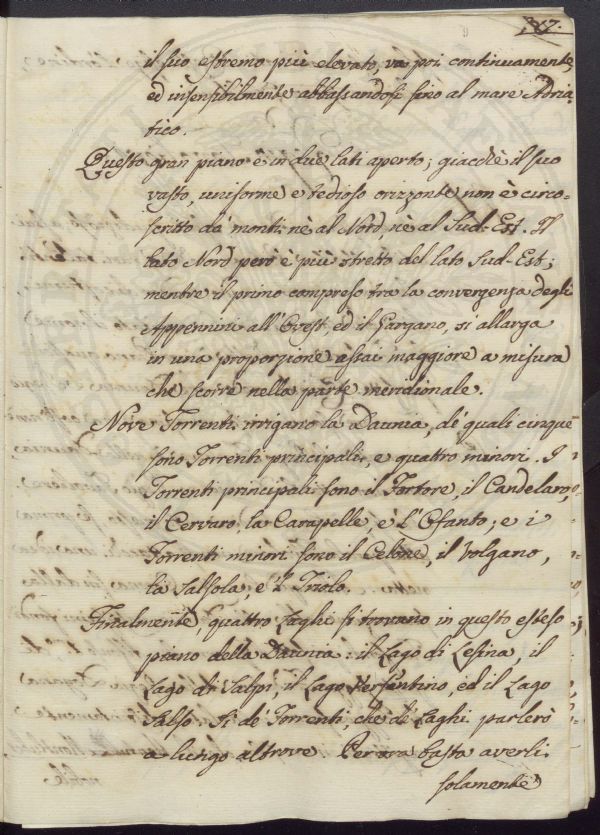 317.
il suo estremo più elevato, va poi continuamente,
ed insensibilmente abbassandosi fino al mare Adria-
tico.
Questo gran piano è in due lati aperto; giacchè il suo
vasto, uniforme e tedioso orizzonte non è circo-
scritto da' monti, nè al Nord, nè al Sud-Est. Il
lato Nord però è più stretto del lato Sud-Est;
mentre il primo compreso tra la convergenza degli
Appennini all'Ovest, ed il Gargano, si allarga
in una proporzione assai maggiore a misura
che scorre nella parte meridionale.
Nove Torrenti irrigano la Daunia, de' quali cinque
sono Torrenti principali, e quattro minori. I
Torrenti principali sono il Fortore, il Candelaro,
il Cervaro, la Carapelle, e l'Ofanto; e i
Torrenti minori sono il Celone, il Volgano,
la Salsola, e 'l Triolo.
Finalmente, quattro Laghi si trovano in questo esteso
piano della Daunia: il Lago di Lesina, il
Lago di Salpi, il Lago Versentino, ed il Lago
Salso. Sì de' Torrenti, che de' Laghi parlerò
a lungo altrove. Per ora basta averli
solamente